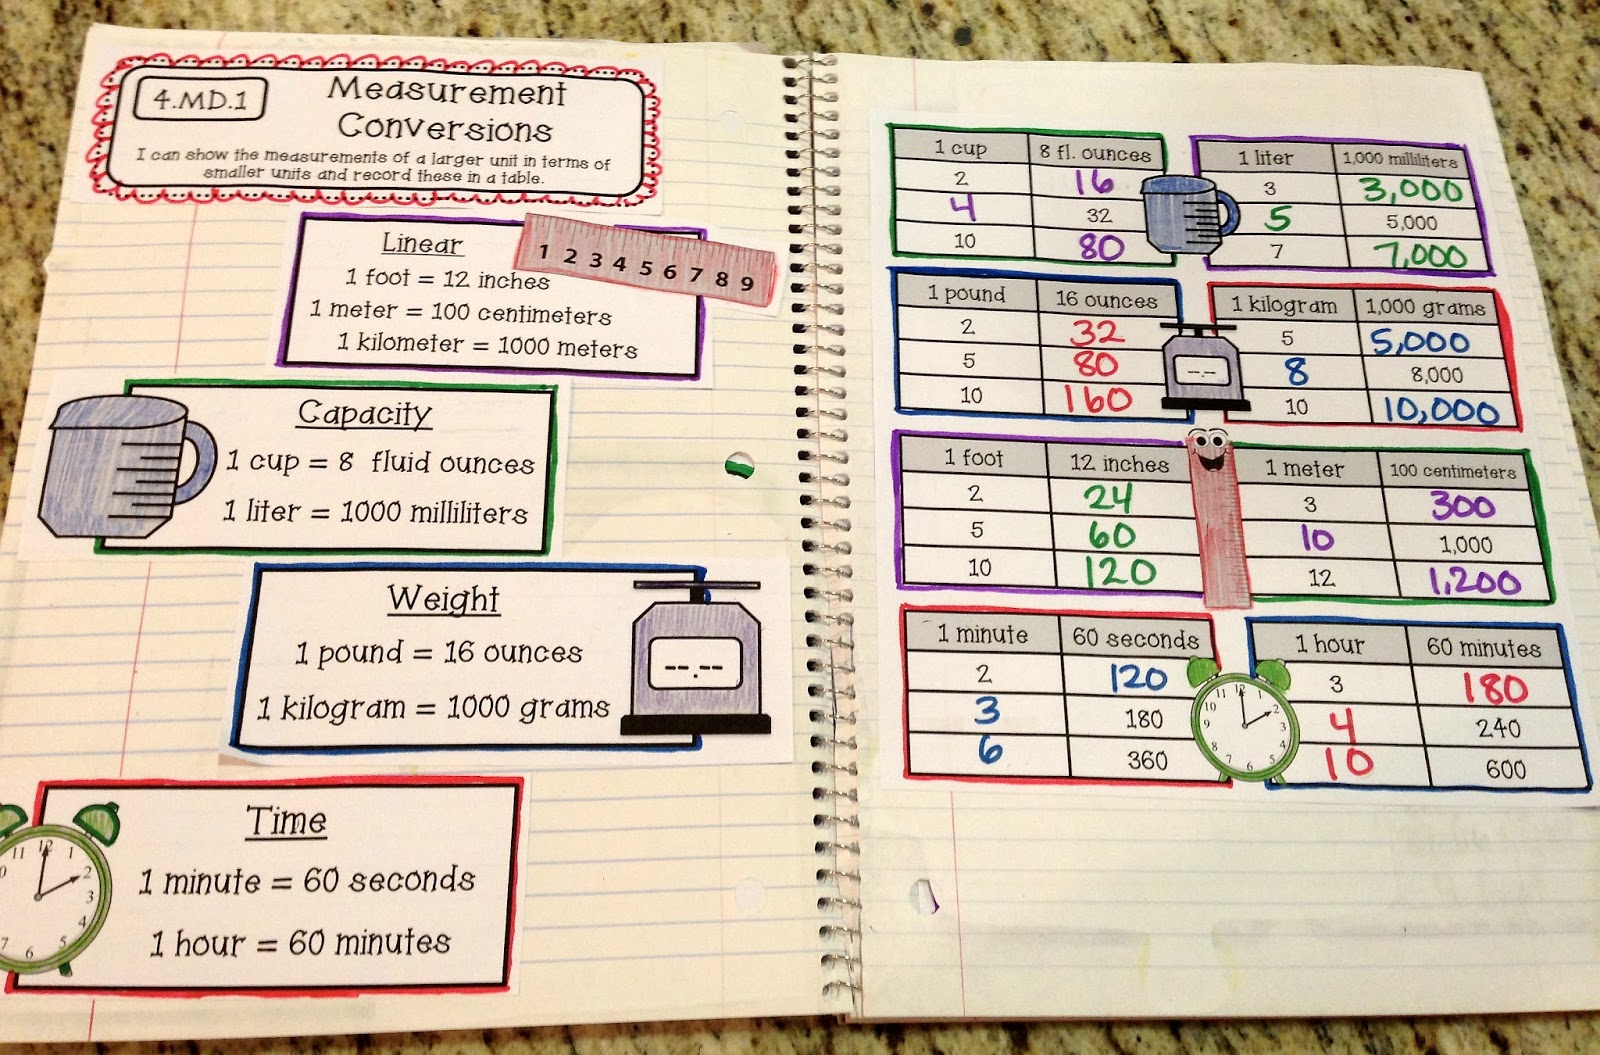 4.MD.1
Measurement
Conversions
I can show the measurements of a larger unit in terms of
smaller units and record these in a table.
Linear
1 foot = 12 inches
1 meter = 100 centimeters
1 kilometer = 1000 meters
1 2 3 4 5 6 7 8 9
Capacity
1 cup = 8 fluid ounces
1 liter = 1000 milliliters
Weight
1 pound = 16 ounces
1 kilogram = 1000 grams
--.--
Time
1 minute = 60 seconds
1 hour = 60 minutes
11 12 1 2 3 4 5 6 7
1 cup 8 fl. ounces
2 16
4 32
10 80
1 liter 1,000 milliliters
3 3,000
5 5,000
7 7,000
1 pound 16 ounces
2 32
5 80
10 160
--.--
1 kilogram 1,000 grams
5 5,000
8 8,000
10 10,000
1 foot 12 inches
2 24
5 60
10 120
1 meter 100 centimeters
3 300
10 1,000
12 1,200
1 minute 60 seconds
2 120
3 180
6 360
11 12 1 2 3 4 5 6 7 8 9 10
1 hour 60 minutes
3 180
4 240
10 600